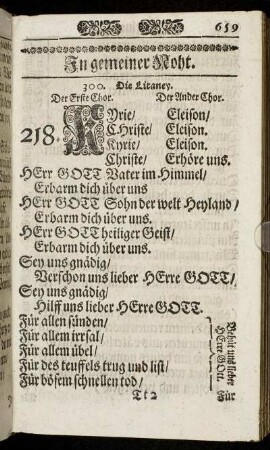 659
In gemeiner Noht.
300. Die Litaney.
Der Erste Chor. Der Ander Chor.
218. KYrie/ Eleison/
CHriste/ Eleison.
Kyrie/ Eleison.
Christe/ Erhöre uns.
HErr GOTT Vater im Himmel/
Erbarm dich über uns
HErr GOTT Sohn der welt Heyland/
Erbarm dich über uns.
HErr GOTT heiliger Geist/
Erbarm dich über uns.
Sey uns gnädig/
Verschon uns lieber HErre GOTT/
Sey uns gnädig/
Hilff uns lieber HErre GOTT.
Für allen sünden/
Für allem irrsal/
Für allem übel/
Für des teuffels trug und list/
Für bösem schnellen tod/
Behüt uns lieber
HErre GOtt.
Tt 2 Für